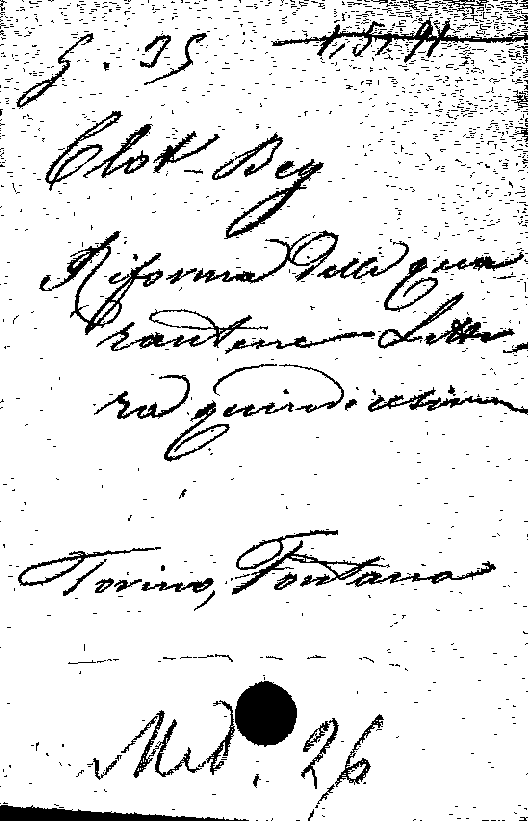 G. 35 1,5,91
Clot-Bey
Riforma delle qua
rantene - Lette-
ra quindicesima
Torino, Fontana
Med. 26